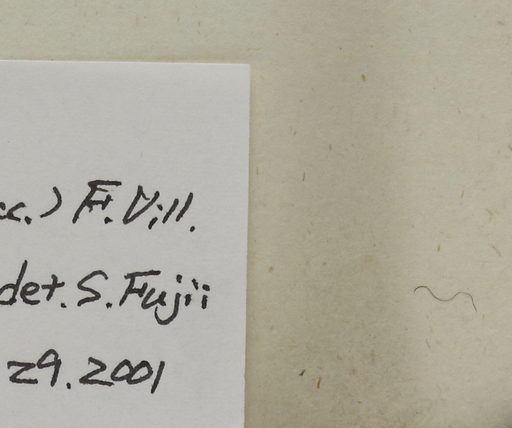 cc.) F. Vill.
det. S. Fujii
29. 2001